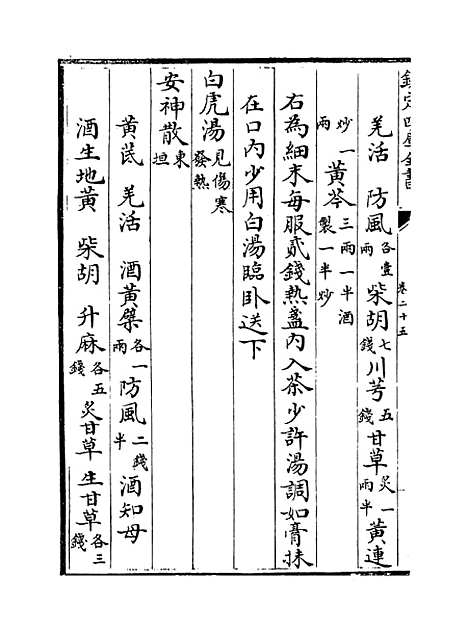 欽定四庫全書
卷二十五
羌活 防風各壹兩 柴胡七錢 川芎五錢 甘草炙一兩半 黃連
炒一兩 黃芩三兩一半酒製一半炒
右為細末每服貳錢熱盞內入茶少許湯調如膏抹
在口內少用白湯臨卧送下
白虎湯見傷寒發熱
安神散東垣
黃芪 羌活 酒黃檗各一兩 防風二錢半 酒知母
酒生地黃 柴胡 升麻各五錢 炙甘草 生甘草各三錢